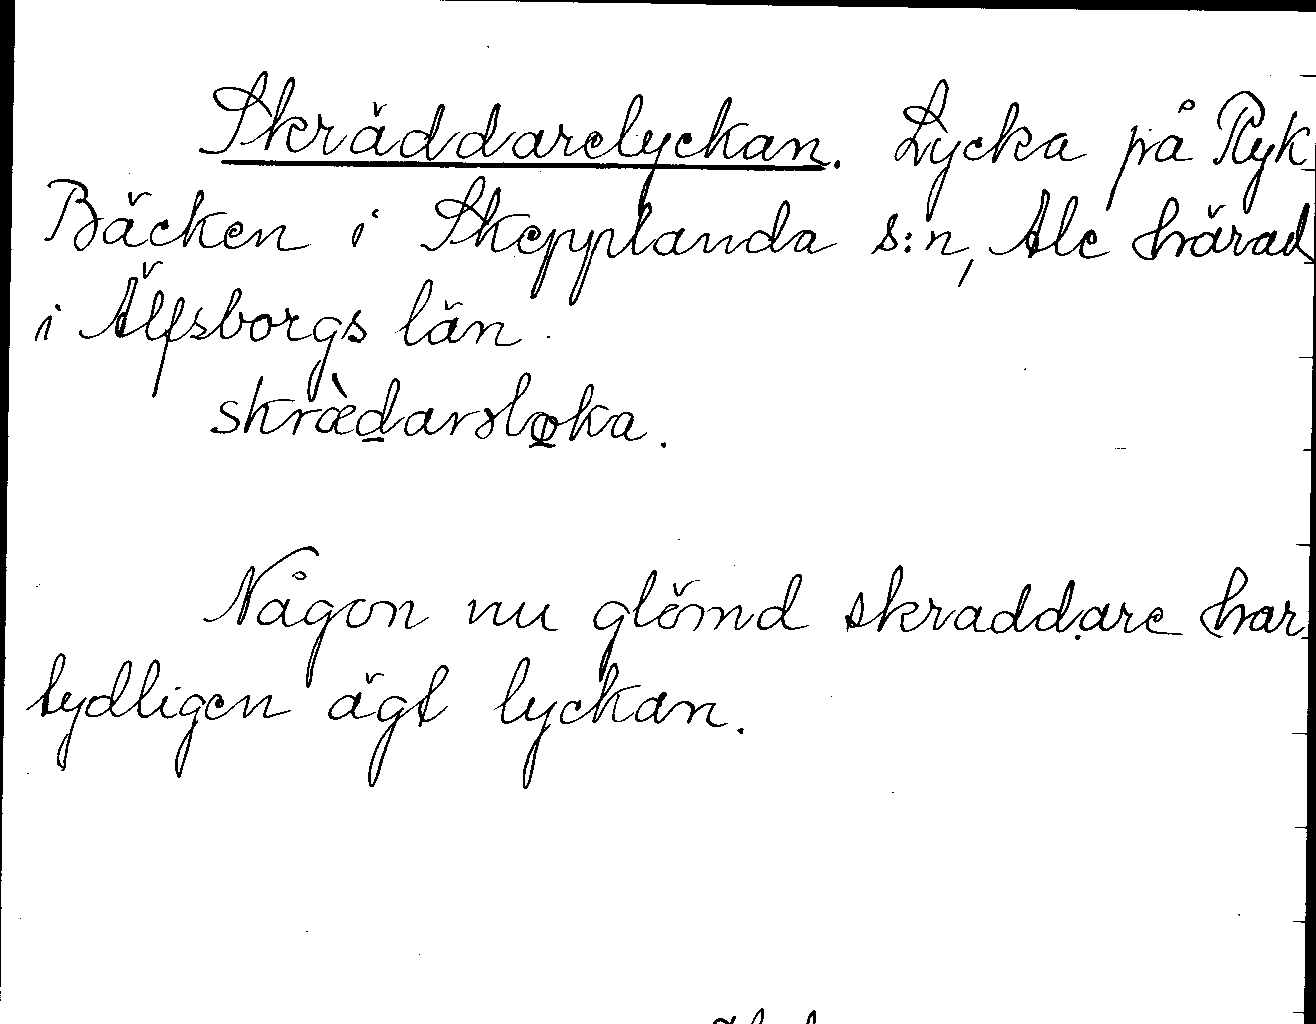 Skräddarelyckan. Lycka på Ryk
Bäcken i Skepplanda s:n, Ale härad
i Älfsborgs län.
skræ̀darslo̱ka.
Någon nu glömd skraddare har
tydligen ägt lyckan.